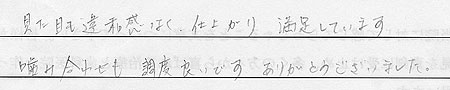 見た目も違和感なく、仕上がり 満足しています
噛み合わせも 調度良いです ありがとうございました。